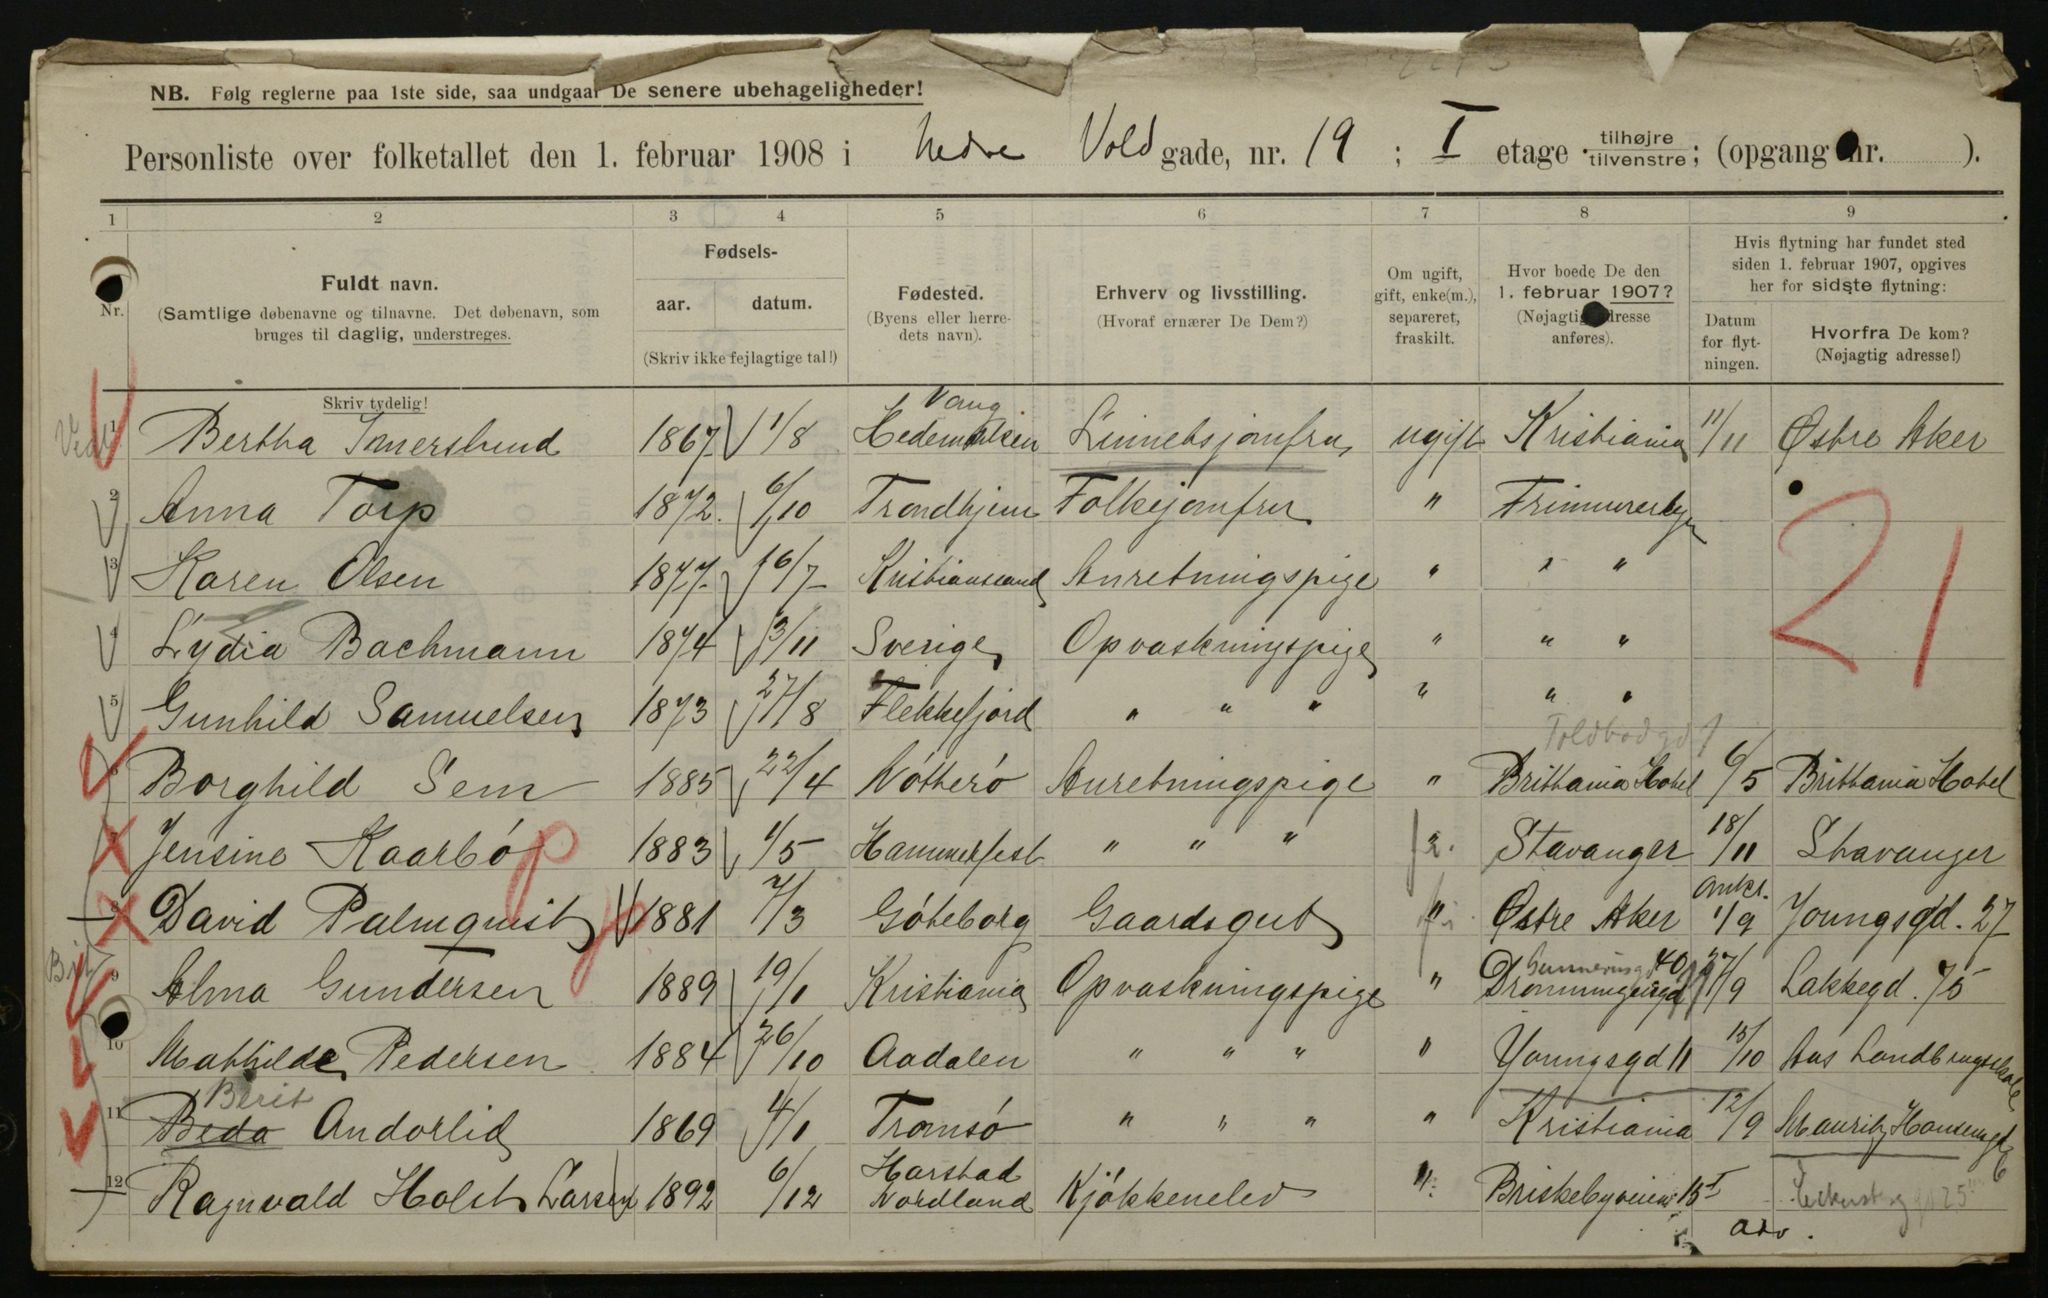 NB. Følg reglerne paa 1ste side, saa undgaar De senere ubehageligheder!
Personliste over folketallet den 1. februar 1908 i Nedre Vold gade, nr. 19 ; I etage tilhøjre tilvenstre ; (opgang nr. ).
1 2 3 4 5 6 7 8 9
Nr.
Fuldt navn.
(Samtlige døbenavne og tilnavne. Det døbenavn, som
bruges til daglig, understreges.
Skriv tydelig!
Fødsels-
aar. datum.
(Skriv ikke fejlagtige tal!)
Fødested.
(Byens eller herre-
dets navn).
Erhverv og livsstilling.
(Hvoraf ernærer De Dem?)
Om ugift,
gift, enke(m.),
separeret,
fraskilt.
Hvor boede De den
1. februar 1907?
(Nøjagtig adresse
anføres).
Hvis flytning har fundet sted
siden 1. februar 1907, opgives
her for sidste flytning:
Datum
for flyt-
ningen.
Hvorfra De kom?
(Nøjagtig adresse!)
Vang
1 Bertha Imerslund 1867 1/8 Hedemarken Linnetsjomfru ugift Kristiania 11/11 Østre Aker
2 Anna Torp 1872 6/10 Trondhjem Folkejomfru " Frimurerby
3 Karen Olsen 1877 16/7 Kristianssand Anretningspige " " "
21
4 Lydia Bachmann 1874 3/11 Sverige Opvaskningspige " " "
5 Gunhild Samuelsen 1873 27/8 Flekkefjord " " " " " "
Toldbodgd 7
6 Borghild Sem 1885 22/4 Nötterö Anretningspige " Brittania Hotel 6/5 Brittania Hotel
7 Jensine Kaarbö 1883 1/5 Hammerfest " " " Stavanger 18/11 Stavanger
ankt.
8 David Palmquist 1881 7/3 Göteborg Gaardsgut " Østre Aker 1/9 Youngsgd. 27
9 Alma Gundersen 1889 19/1 Kristiania Opvaskningspige " Dronningensgd 40 27/9 Lakkegd. 75
10 Mathilde Pedersen 1884 26/10 Aadalen " " " " Youngsgd 11 15/10 Aas Landbrugsskole
Berit
11 Beda Andorlid 1869 4/1 Tromsö " " " " Kristiania 12/9 Mauritz Hansensgd 6
12 Ragnvald Holst Larsen 1892 6/12 Harstad Nordland Kjökkenelev " Briskebyveien 15 I
adv.